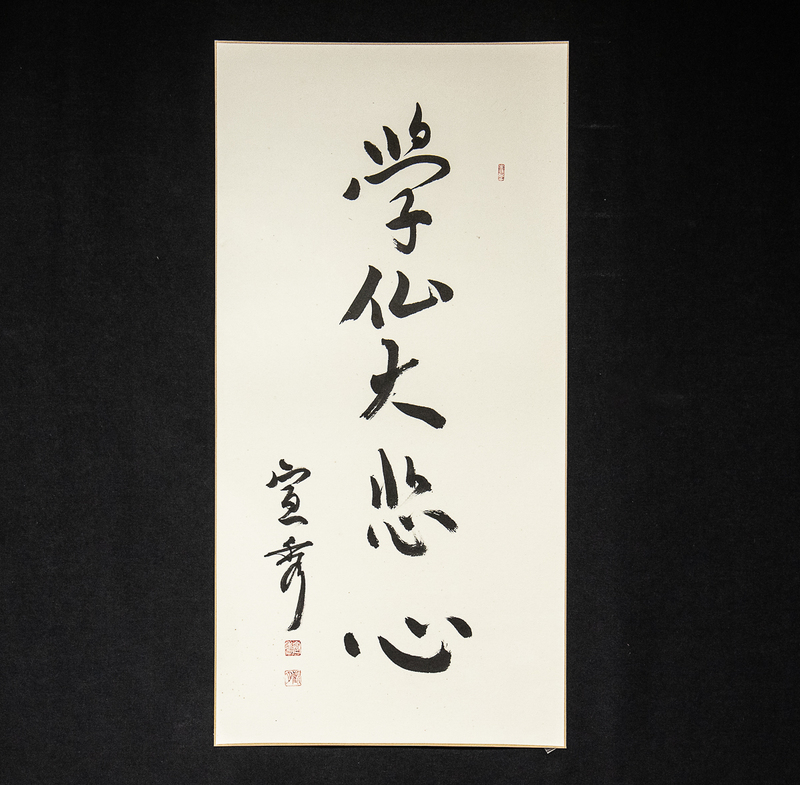 学仏大悲心
宣秀